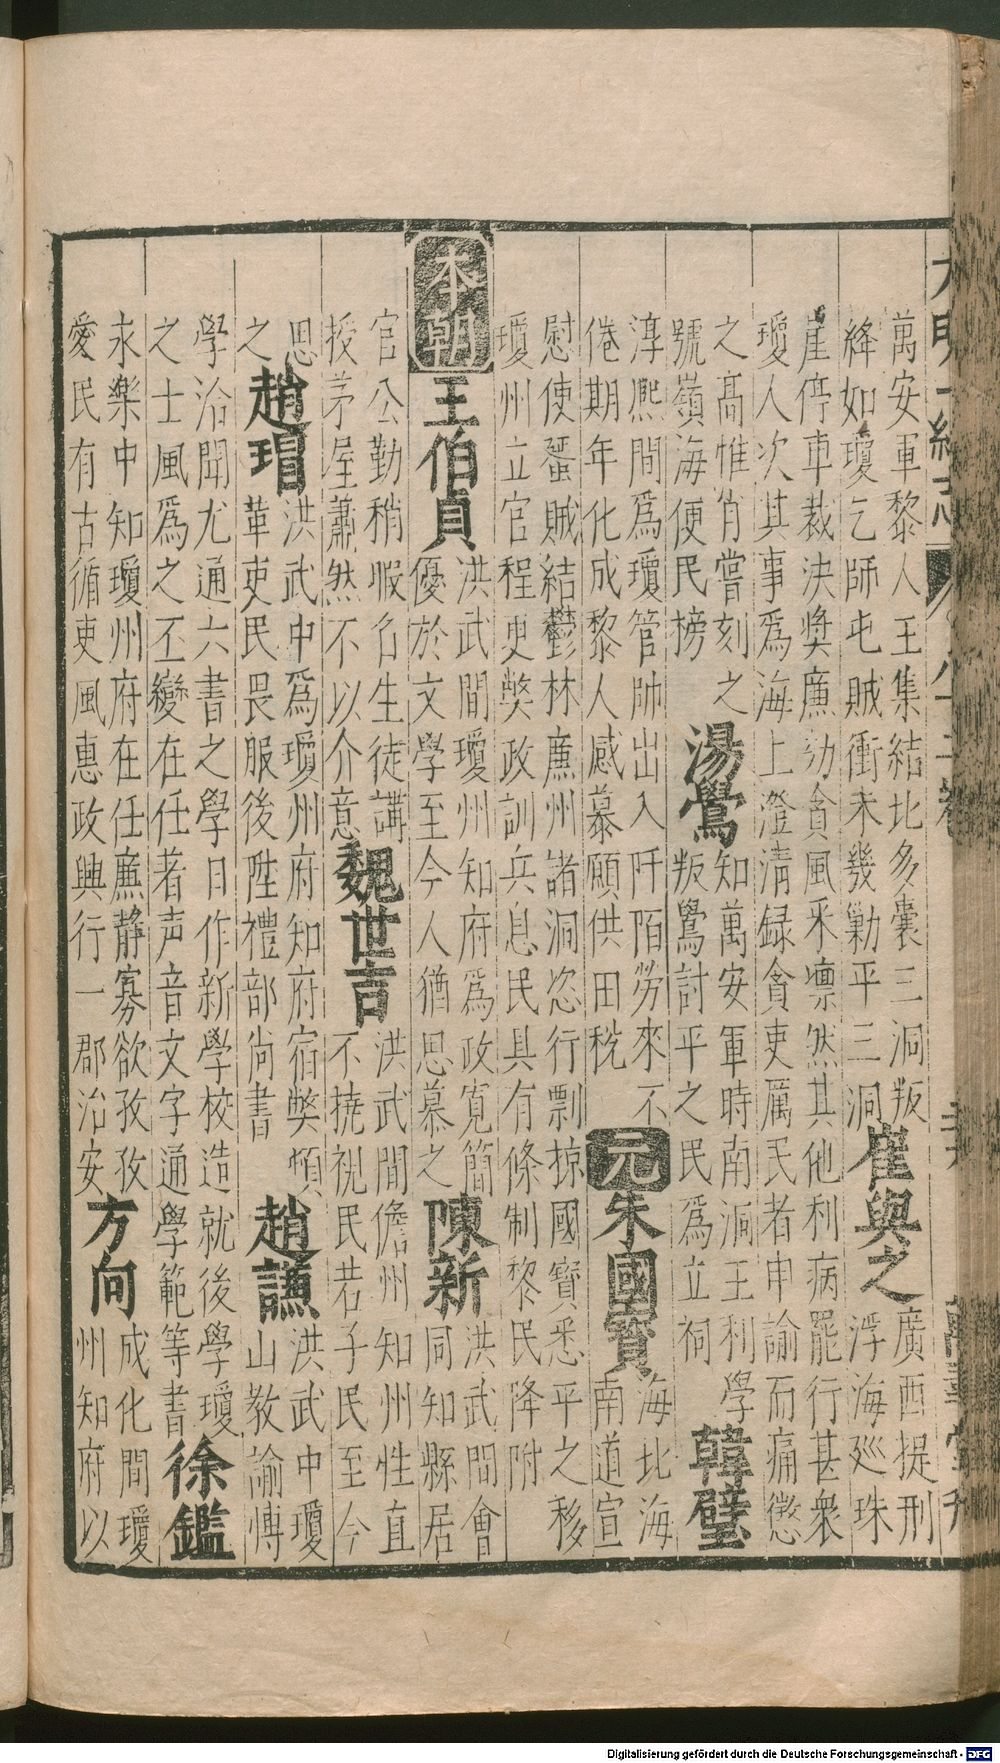 大明一統志
萬壽堂刊
萬安軍黎人王集結比多囊三洞叛
絳如瓊乞師屯賊衝未幾勦平三洞
崔與之
廣西提刑
浮海廵珠
崖停車裁決獎廉劾貪風采凛然其他利病罷行甚衆
瓊人次其事爲海上澄清録貪吏厲民者申諭而痛懲
之髙惟肖嘗刻之
號嶺海便民榜
湯鷽
知萬安軍時南洞王利學
叛鷽討平之民爲立祠
韓璧
淳熈間爲瓊管帥出入阡陌勞來不
倦期年化成黎人感慕願供田稅
元
朱國寳
海北海
南道宣
慰使蜑賊結鬱林廉州諸洞恣行剽掠國寳悉平之移
瓊州立官程更獘政訓兵息民具有條制黎民降附
本朝
王伯貞
洪武間瓊州知府爲政寛簡
優於文學至今人猶思慕之
陳新
洪武間會
同知縣居
官公勤稍暇名生徒講
授茅屋蕭然不以介意
魏世吉
洪武間儋州知州性直
不撓視民若子民至今
思
之
趙瑁
洪武中爲瓊州府知府宿獘頓
革吏民畏服後陞禮部尚書
趙謙
洪武中瓊
山教諭博
學洽聞尤通六書之學日作新學校造就後學瓊
之士風爲之丕變在任著声音文字通學範等書
徐鑑
永樂中知瓊州府在任廉静寡欲孜孜
愛民有古循吏風惠政興行一郡治安
方向
成化間瓊
州知府以
Digitalisierung gefördert durch die Deutsche Forschungsgemeinschaft - DFG